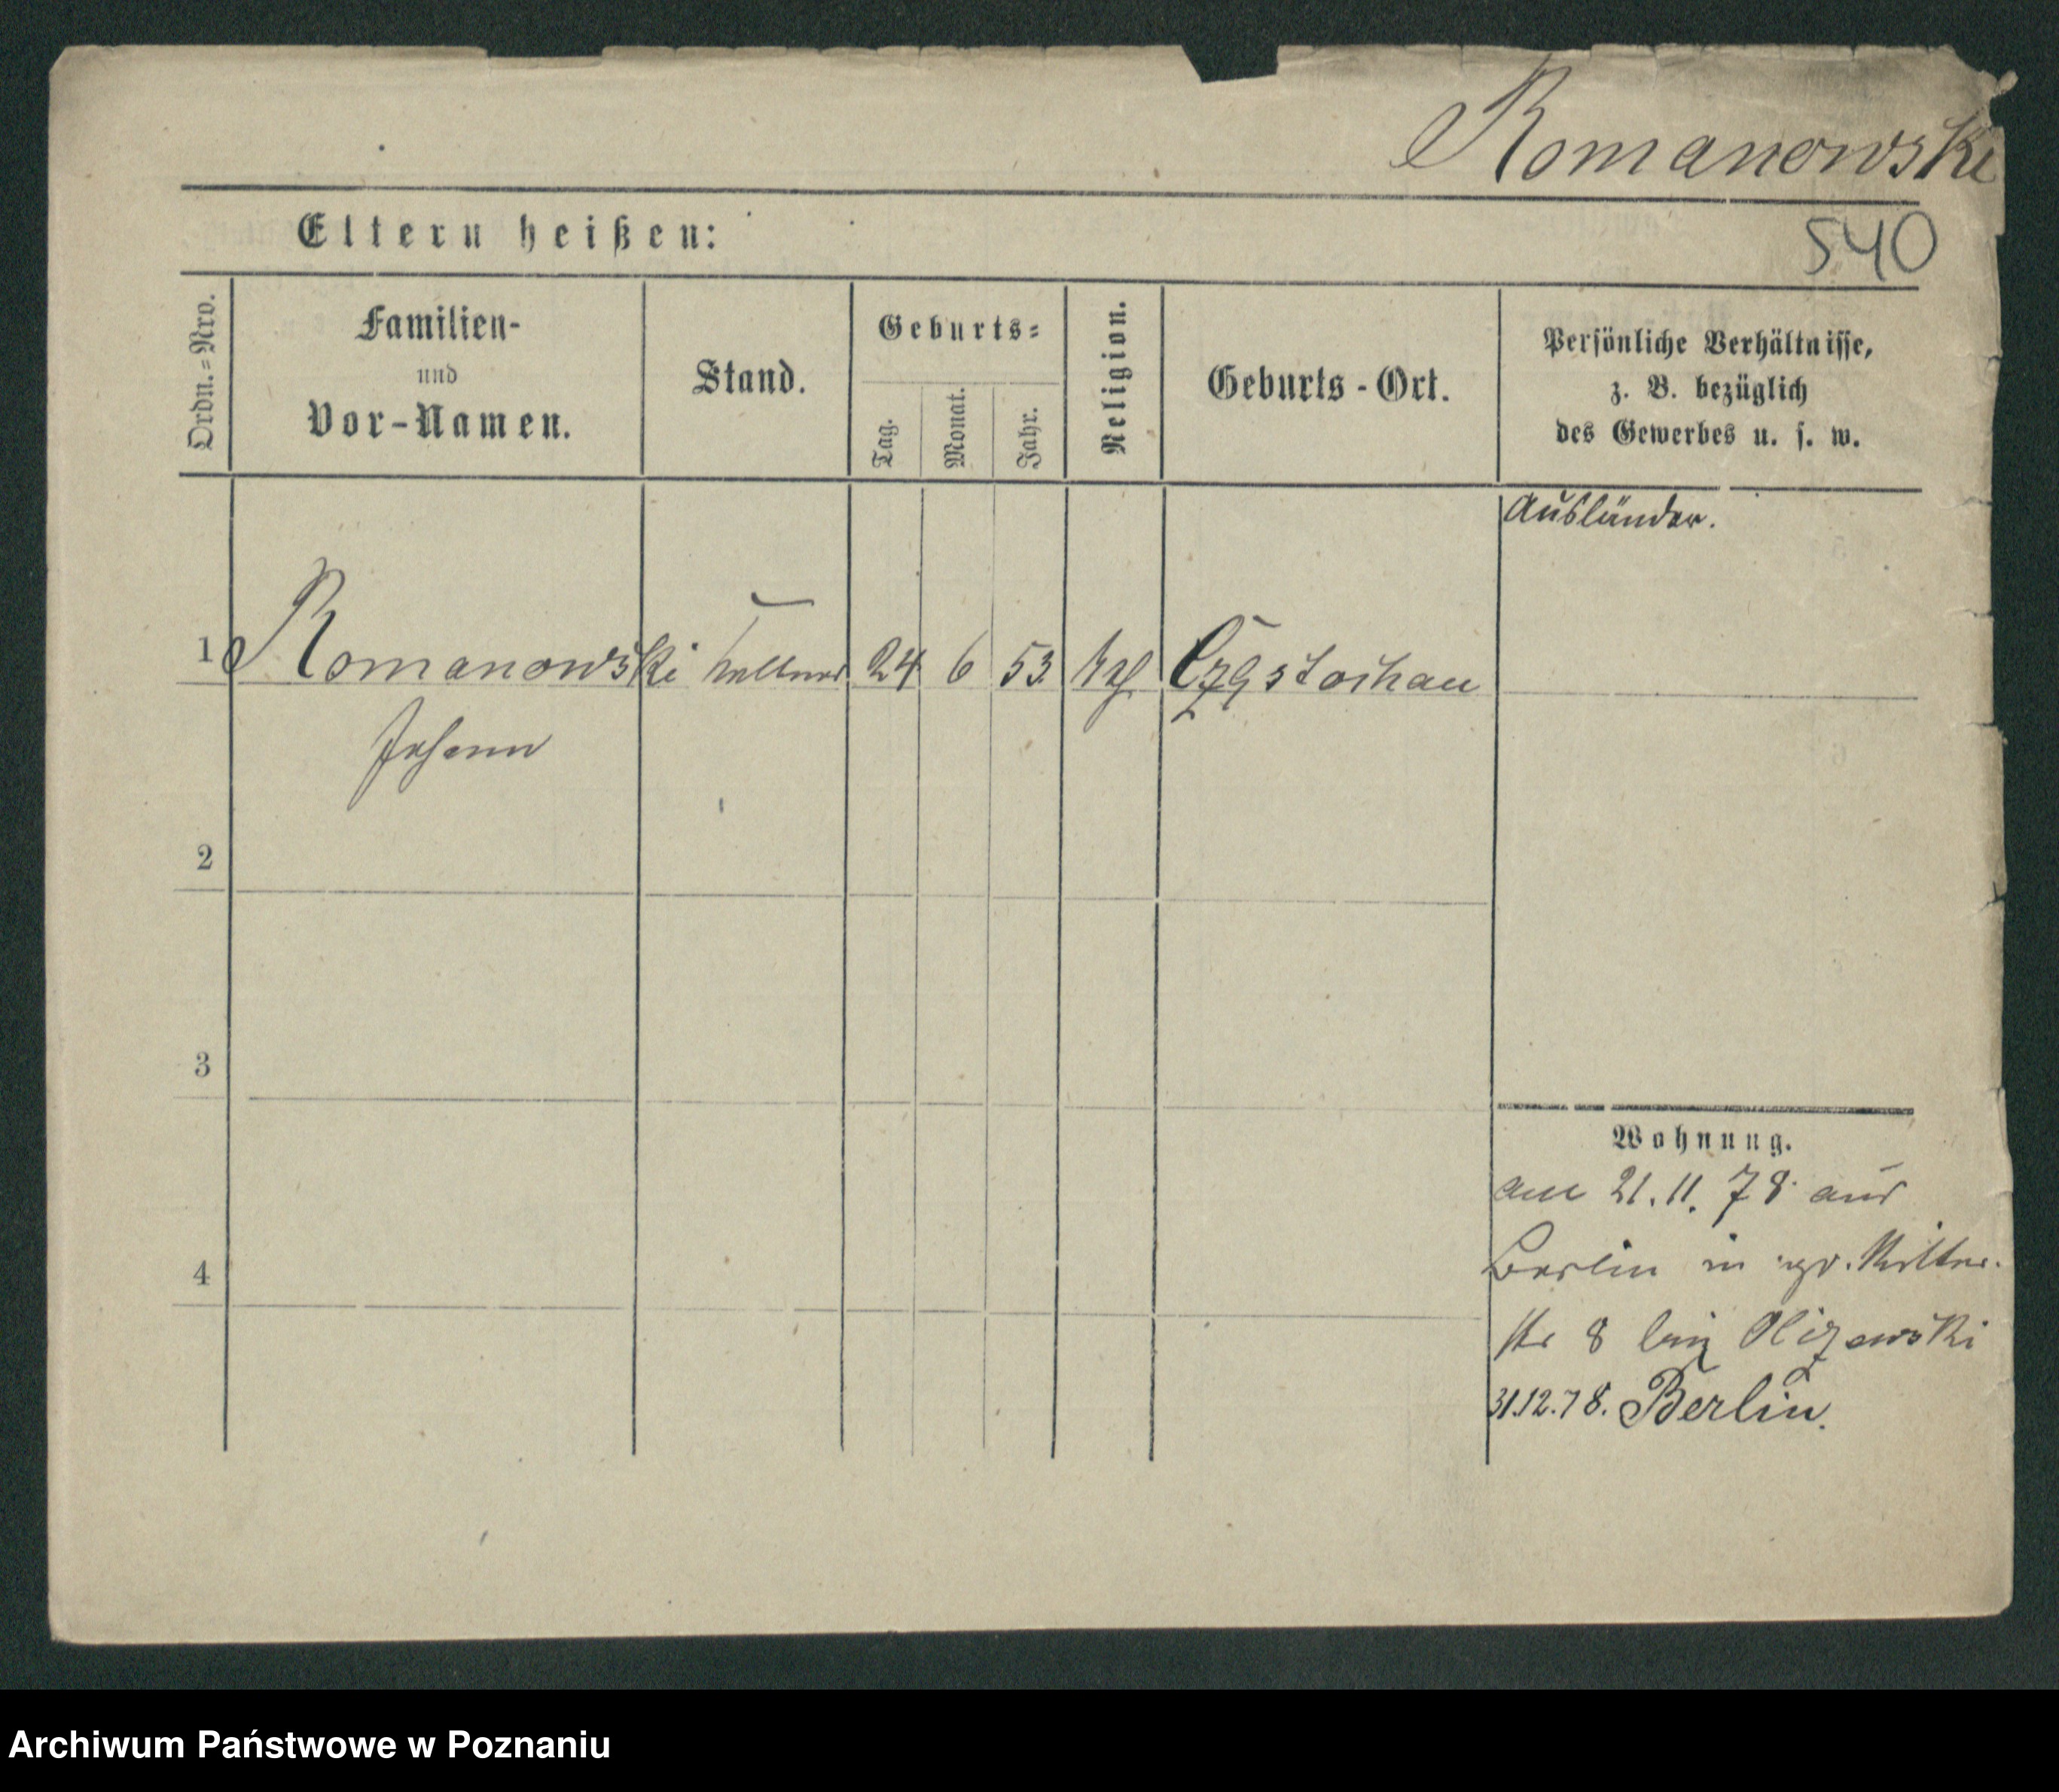 Romanowski
Eltern heißen:
540
Ordn.=Nro.
Familien-
und
Vor-Namen.
Stand.
Geburts=
Tag.
Monat.
Jahr.
Religion.
Geburts-Ort.
Persönliche Verhältnisse,
z. B. bezüglich
des Gewerbes u. s. w.
Ausländer.
1 Romanowski Kellner 24 6 53 kath Częstochau
Johann
2
3
4
Wohnung.
am 21.11.78 aus
Berlin in gr. Ritter-
str 8 bei
31.12.78. Berlin.
Archiwum Państwowe w Poznaniu